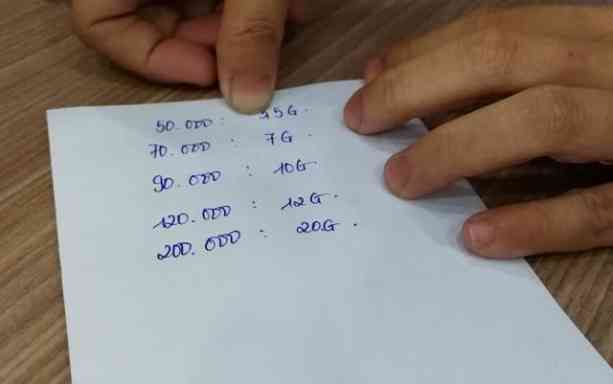 50.000 :
70.000 : 7G.
90.000 : 10G
120.000 : 12G.
200.000 : 20G.